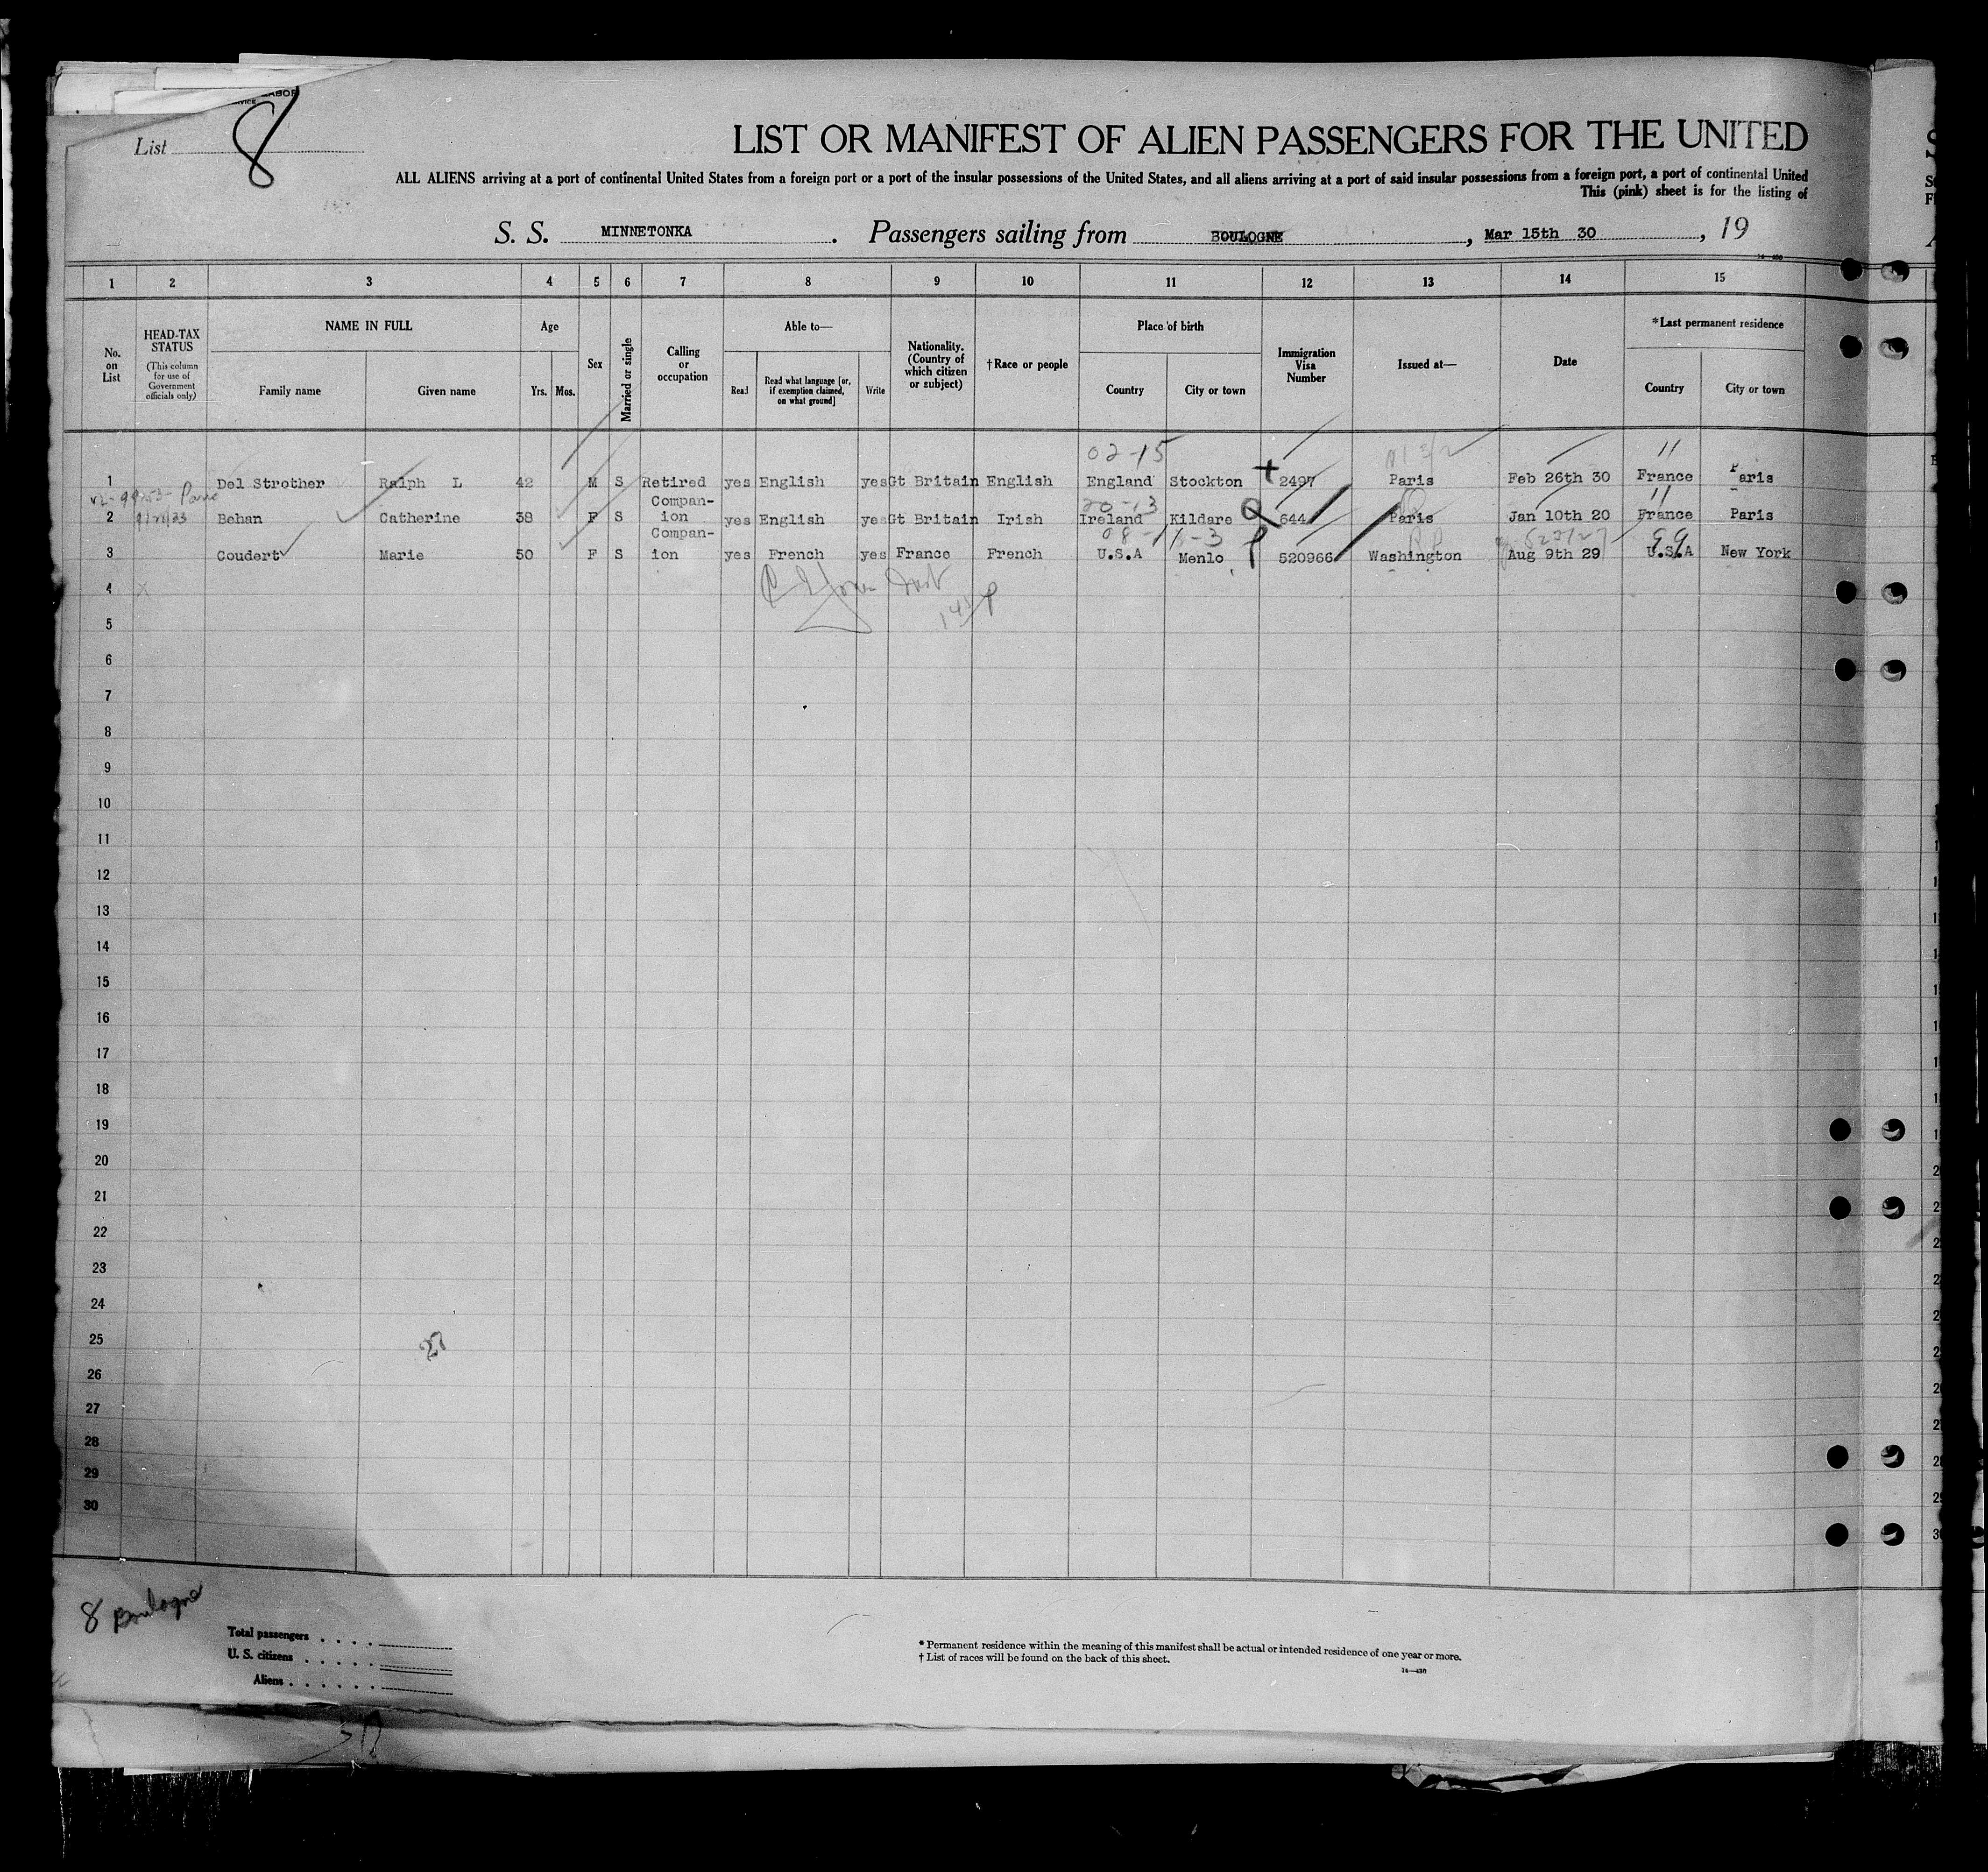 LABOR
List 8
LIST OR MANIFEST OF ALIEN PASSENGERS FOR THE UNITED
ALL ALIENS arriving at a port of continental United States from a foreign port or a port of the insular possessions of the United States, and all aliens arriving at a port of said insular possessions from a foreign port, a port of continental United
This (pink) sheet is for the listing of
S. S. MINNETONKA. Passengers sailing from BOULOGNE, Mar 15th 30, 19
1 2 3 4 5 6 7 8 9 10 11 12 13 14 15
No. on List
HEAD-TAX STATUS (This column for use of Government officials only)
NAME IN FULL
Family name Given name
Age
Yrs. Mos.
Sex
Married or single
Calling or occupation
Able to—
Read
Read what language [or, if exemption claimed, on what ground]
Write
Nationality. (Country of which citizen or subject)
†Race or people
Place of birth
Country City or town
Immigration Visa Number
Issued at—
Date
*Last permanent residence
Country City or town
02-15 11
1 Del Strother Ralph L 42 M S Retired yes English yes Gt Britain English England Stockton 2497 Paris Feb 26th 30 France Paris
20-13 11
2 Behan Catherine 38 F S Compan-ion yes English yes Gt Britain Irish Ireland Kildare 644 Paris Jan 10th 20 France Paris
99
3 Coudert Marie 50 F S Compan-ion yes French yes France French U.S.A Menlo 520966 Washington Aug 9th 29 U.S.A New York
4
5
6
7
8
9
10
11
12
13
14
15
16
17
18
19
20
21
22
23
24
25
26
27
28
29
30
8 Boulogne
Total passengers . . . .
U. S. citizens . . . . .
Aliens . . . . . .
* Permanent residence within the meaning of this manifest shall be actual or intended residence of one year or more.
† List of races will be found on the back of this sheet.
14—430